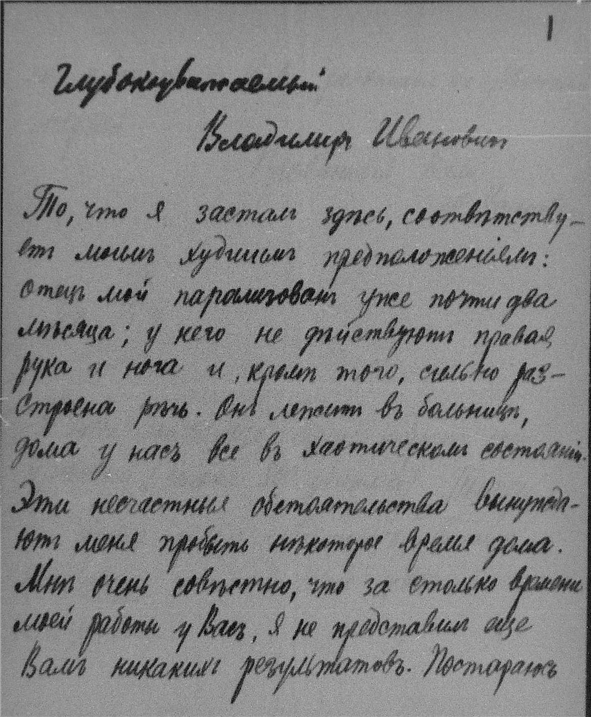 1
Глубокоуважаемый
Владимиръ Ивановичъ
То, что я засталъ здѣсь, соотвѣтству-
етъ моимъ худшимъ предположеніямъ:
отецъ мой парализованъ уже почти два
мѣсяца; у него не дѣйствуютъ правая
рука и нога и, кромѣ того, сильно раз-
строена рѣчь. Онъ лежитъ въ больницѣ,
дома у насъ все въ хаотическомъ состояніи.
Эти несчастныя обстоятельства вынужда-
ютъ меня пробыть нѣкоторое время дома.
Мнѣ очень совѣстно, что за столько времени
моей работы у Васъ, я не представилъ еще
Вамъ никакихъ результатовъ. Постараюсь